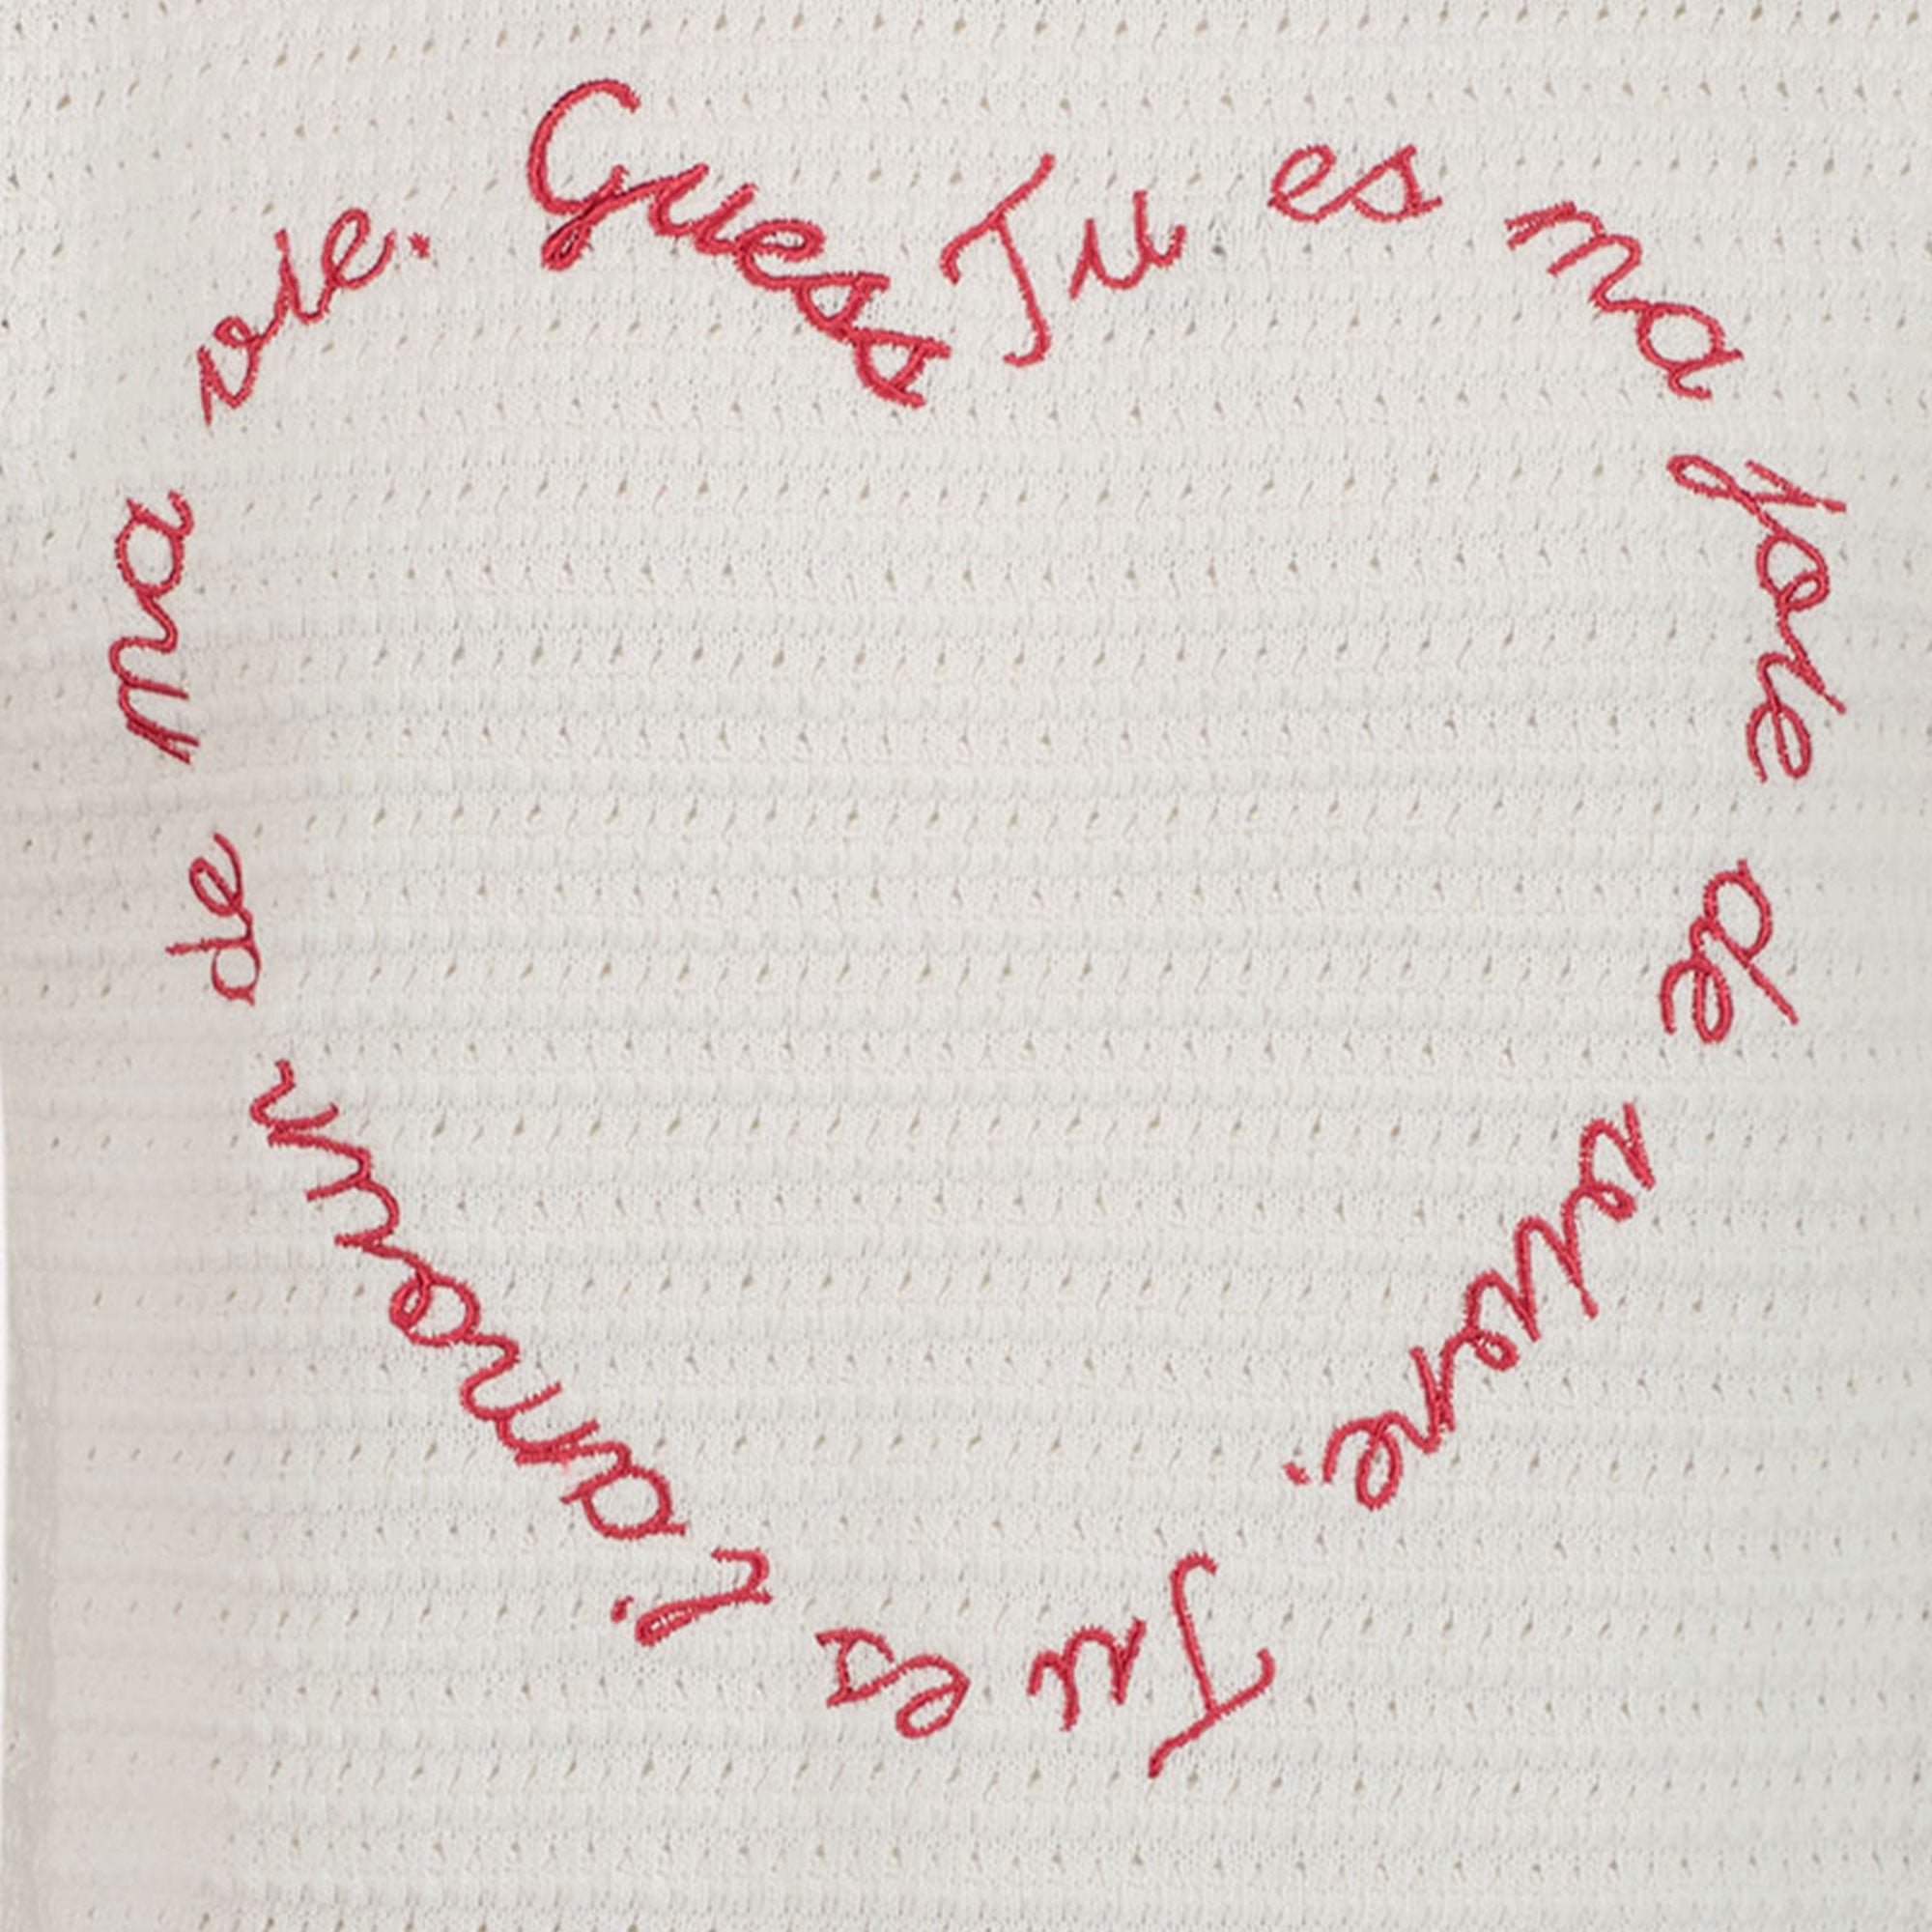 Guess
Tu es ma joie de vivre.
Tu es l'amour de ma vie.